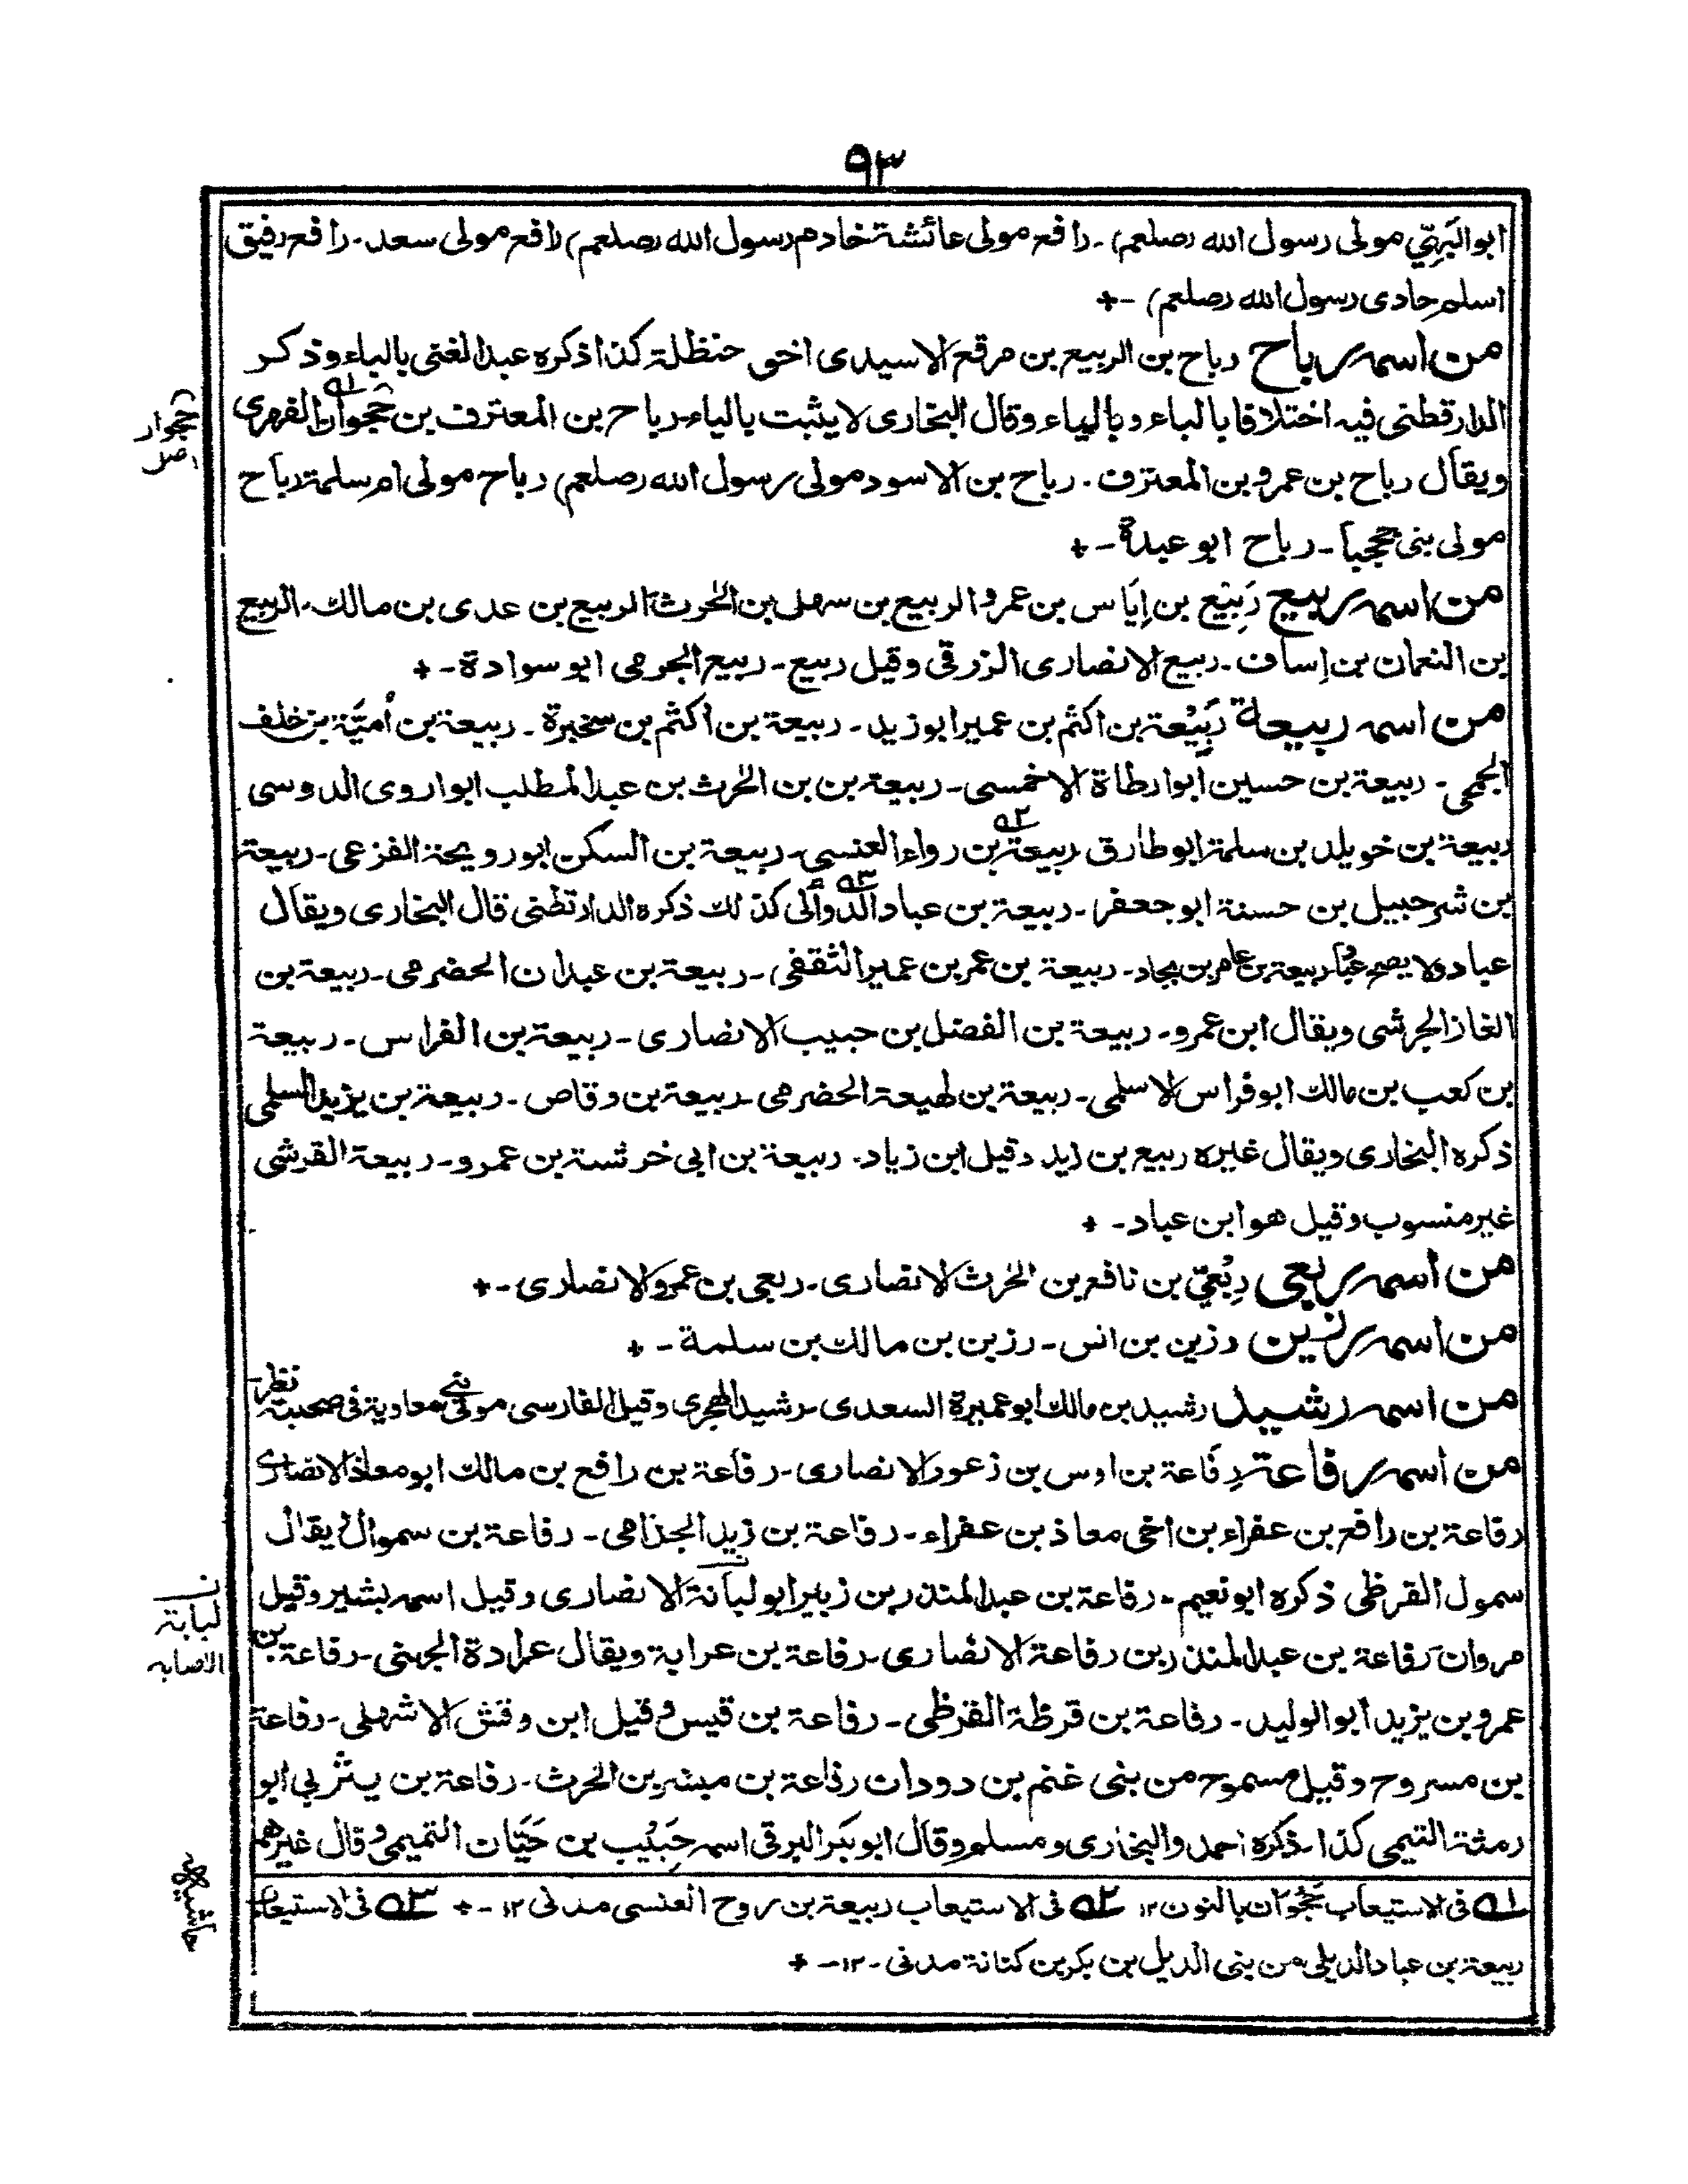 ٩٣
ابو البَهِيّ مولى رسول الله (صلعم) ـ رافع مولى عائشة خادم رسول الله (صلعم) رافع مولى سعد ـ رافع رفيق
اسلم حادى رسول الله (صلعم) ـ+
من اسمه رباح رباح بن الربيع بن مرقع الاسيدى اخى حنظلة كذا ذكره عبد الغنى بالباء وذكر
الدارقطنى فيه اختلافا بالباء وبالياء وقال البخارى لا يثبت بالياء ـ رباح بن المعترف بن حجوان الفهرى
ويقال رباح بن عمرو بن المعترف ـ رباح بن الاسود مولى رسول الله (صلعم) رباح مولى ام سلمة رباح
مولى بنى جحجبا ـ رباح ابو عبدة ـ +
من اسمه ربيع رَبِيْع بن اِيَاس بن عمرو الربيع بن سهل بن الحٰرث الربيع بن عدى بن مالك ـ الربيع
بن النعمان بن اِساف ـ ربيع الانصارى الزرقى وقيل ربيع ـ ربيع الجرمى ابو سوادة ـ +
من اسمه ربيعة رَبِيْعة بن اكثم بن عمير ابو زيد ـ ربيعة بن اكثم بن سخبرة ـ ربيعة بن أميَّة بن خلف
الجمحى ـ ربيعة بن حسين ابو ارطاة الاخمسى ـ ربيعة بن بن الحٰرث بن عبد المطلب ابو اروى الدوسى
ربيعة بن خويلد بن سلمة ابو طارق ربيعة بن رواء العنسى ـ ربيعة بن السكن ابو رويحة الفزعى ـ ربيعة
بن شرحبيل بن حسنة ابو جعفر ـ ربيعة بن عباد الدوألى كذلك ذكره الدارقطنى قال البخارى ويقال
عباد ولا يصح عباد ربيعة بن عامر بن بجاد ـ ربيعة بن عمر بن عمير الثقفى ـ ربيعة بن عبدان الحضرمى ـ ربيعة بن
الغاز الجرشى ويقال ابن عمرو ـ ربيعة بن الفضل بن حبيب الانصارى ـ ربيعة بن الفراس ـ ربيعة
بن كعب بن مالك ابو فراس الاسلمى ـ ربيعة بن لهيعة الحضرمى ـ ربيعة بن وقاص ـ ربيعة بن يزيد السلمى
ذكره البخارى ويقال غيره ربيع بن زيد وقيل ابن زياد ـ ربيعة بن ابى خرشة بن عمرو ـ ربيعة القرشى
غير منسوب وقيل هو ابن عباد ـ +
من اسمه ربعى رِبْعيّ بن نافع بن الحٰرث الانصارى ـ ربعى بن عمرو الانصارى ـ +
من اسمه رزين رزين بن انس ـ رزين بن مالك بن سلمة ـ +
من اسمه رشيد رشيد بن مالك ابو عميرة السعدى ـ رشيد الهجرى وقيل الفارسى مولى بنى معاوية فى صحبته نظر
من اسمه رفاعة رِفَاعة بن اوس بن زعور الانصارى ـ رفاعة بن رافع بن مالك ابو معاذ الانصارى
رفاعة بن رافع بن عفراء بن اخى معاذ بن عفراء ـ رفاعة بن زيد الجذامى ـ رفاعة بن سموال يقال
سمول القرظى ذكره ابو نعيم ـ رفاعة بن عبد المنذر بن زبير ابو لبانة الانصارى وقيل اسمه بشير وقيل
مروان رفاعة بن عبد المنذر بن رفاعة الانصارى ـ رفاعة بن عرابة ويقال عرادة الجهنى ـ رفاعة بن
عمرو بن يزيد ابو الوليد ـ رفاعة بن قرظة القرظى ـ رفاعة بن قيس وقيل ابن وقش الاشهلى ـ رفاعة
بن مسروح وقيل مسموح من بنى غنم بن دودان رفاعة بن مبشر بن الحٰرث ـ رفاعة بن يثربى ابو
رمثة التيمى كذا ـ ذكره احمد والبخارى ومسلم وقال ابو بكر البرقى اسمه حَبِيْب بن حَيَّان التميمى وقال غيرهم
حجوار
اصل
لبابة
الاصابه
حاشيه
٩١ فى الاستيعاب حَجْوَان بالنون ١٢ ٩٢ فى الاستيعاب ربيعة بن روح العنسى مدنى ١٢ ـ + ٩٣ فى الاستيعاب
ربيعة بن عباد الديلى من بنى الديل بن بكر بن كنانة مدنى ـ ١٢ ـ +